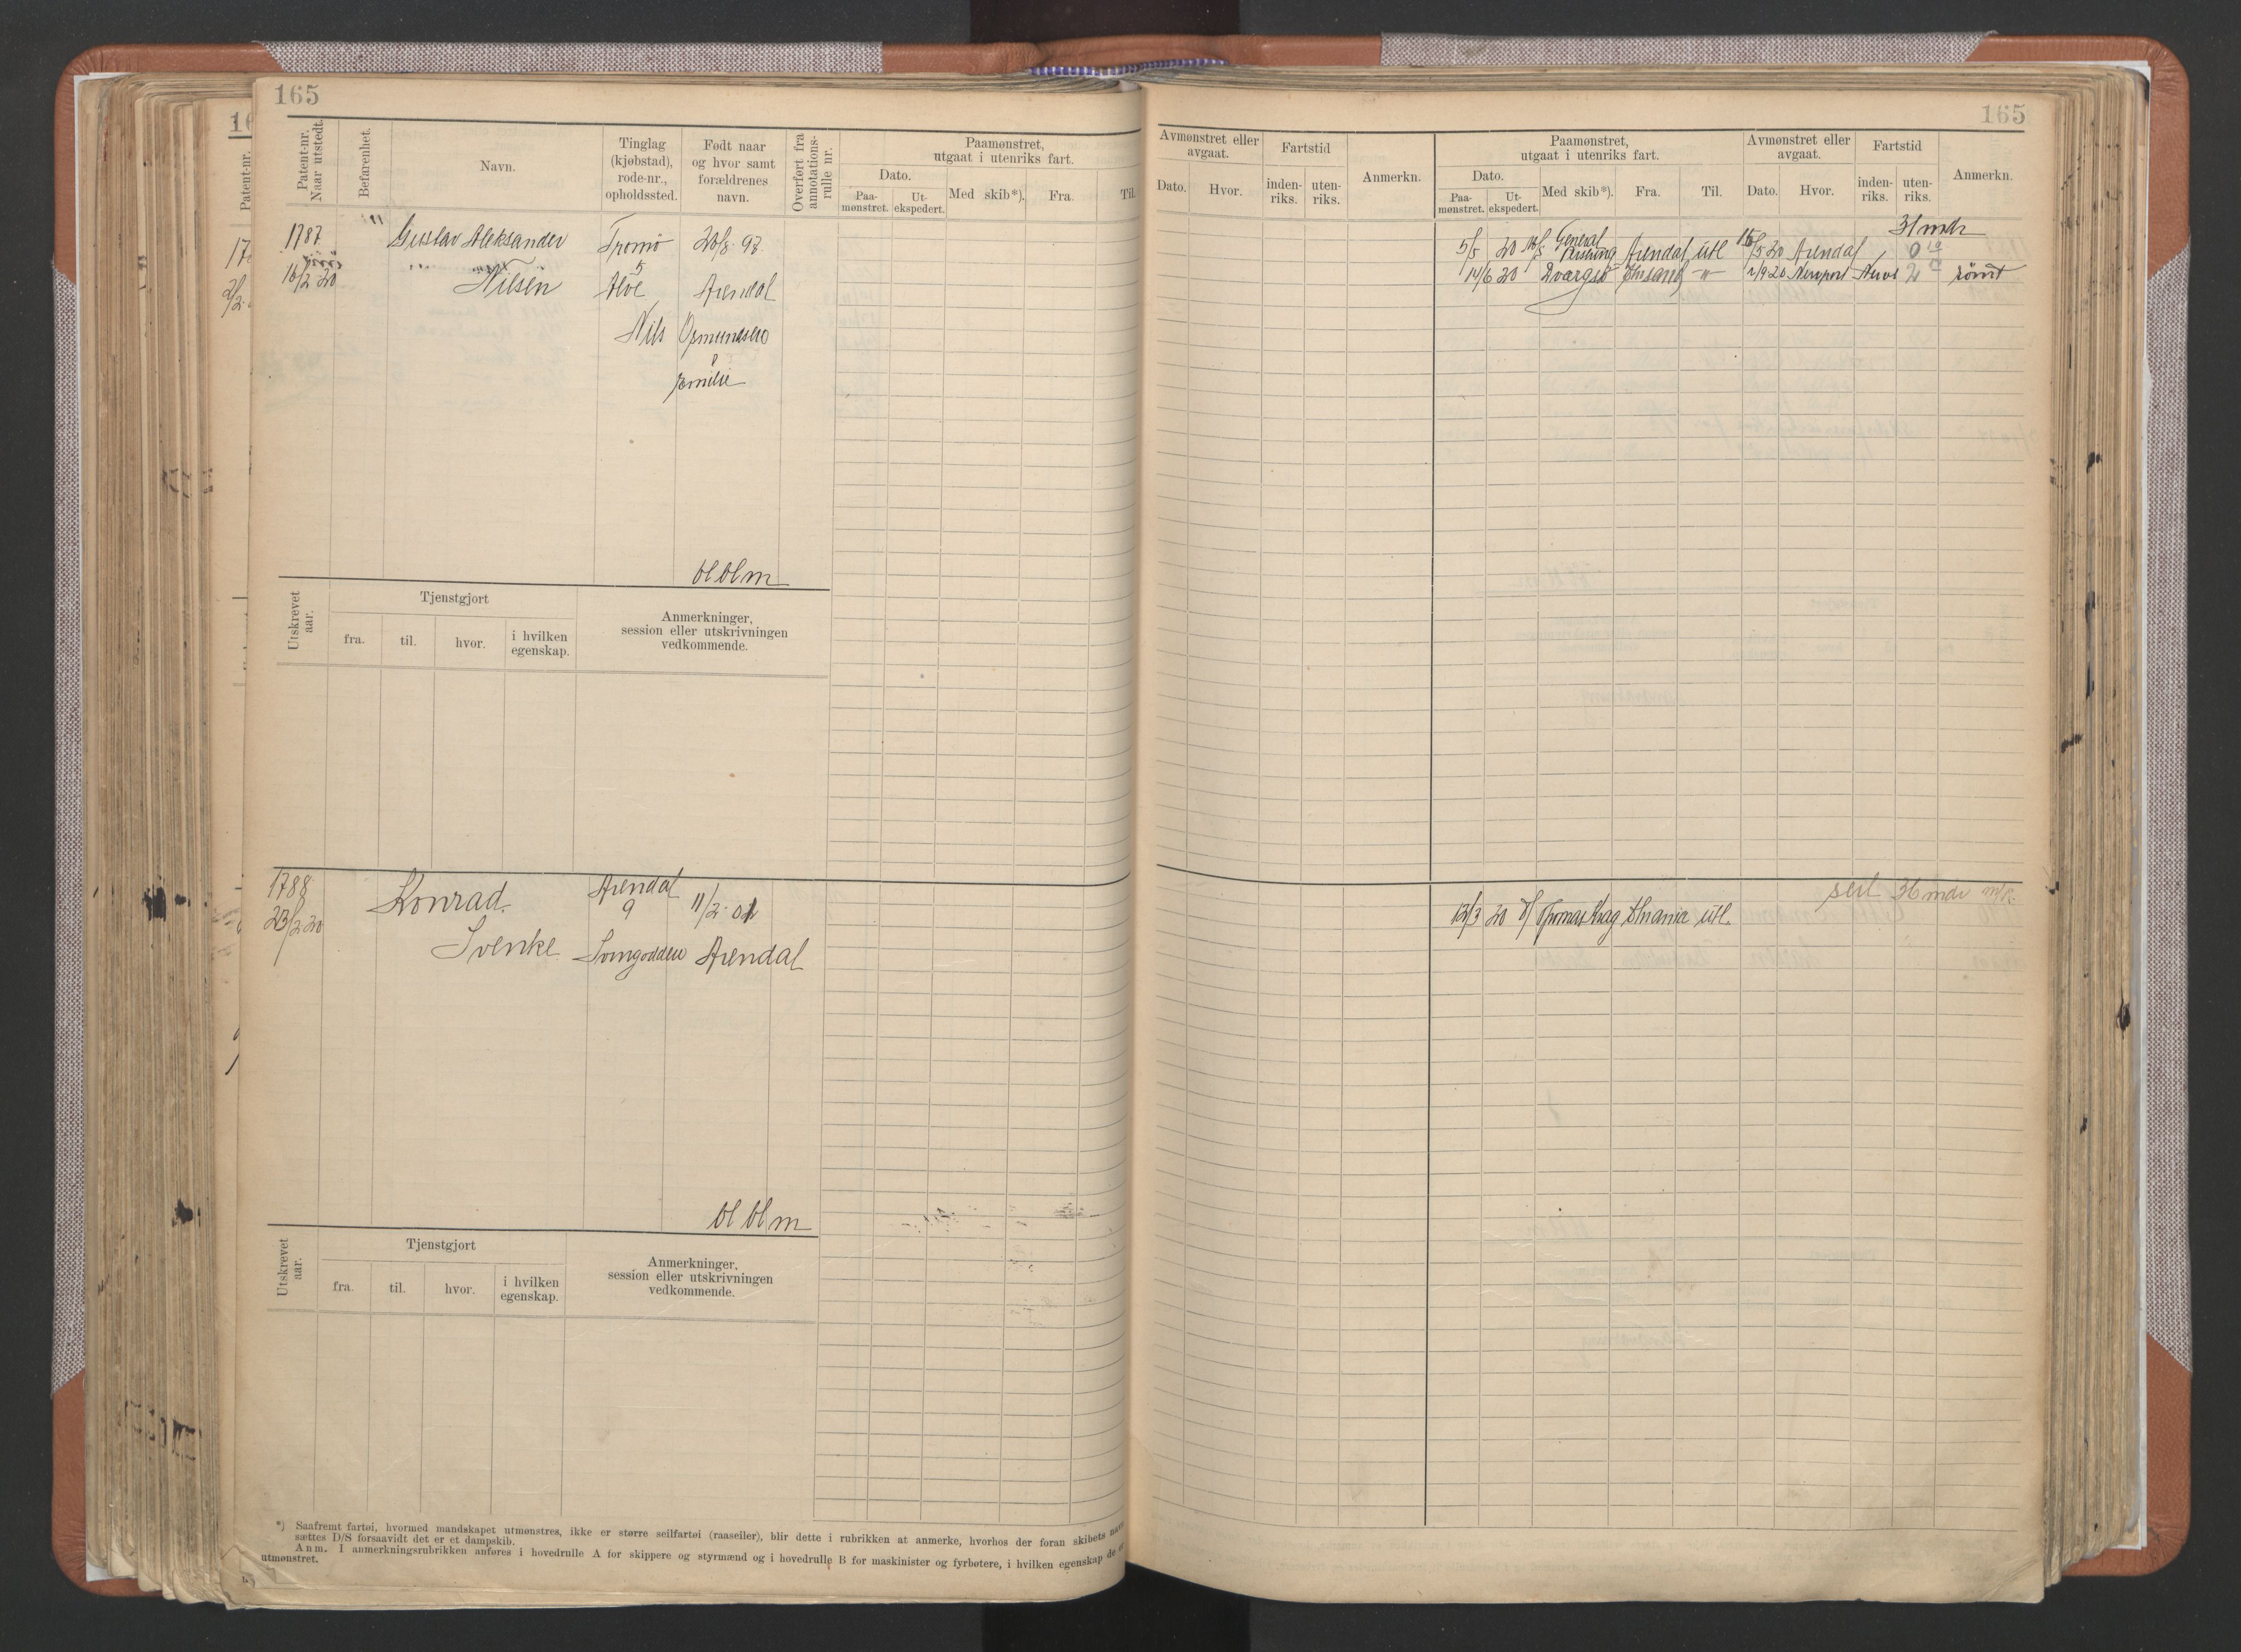 165
Patent-nr.
Naar utstedt.
Befarenhet.
Navn.
Tinglag
(kjøbstad),
rode-nr.,
opholdssted.
Født naar
og hvor samt
forældrenes
navn.
Overført fra
annotations-
rulle nr.
Paamønstret,
utgaat i utenriks fart.
Dato.
Paa-
mønstret.
Ut-
ekspedert.
Med skib*).
Fra.
Til.
1787
16/2 20
Gustav Aleksander
Nilsen
Tromø
5
Alve
20/8. 97.
Arendal
Nils Osmundsen
Emilie
bl bl m
Utskrevet
aar.
Tjenstgjort
fra.
til.
hvor.
i hvilken
egenskap.
Anmerkninger,
session eller utskrivningen
vedkommende.
1788
23/2 20
Konrad
Svenke
Arendal
9
11/2. 01
Arendal
bl bl m
Utskrevet
aar.
Tjenstgjort
fra.
til.
hvor.
i hvilken
egenskap.
Anmerkninger,
session eller utskrivningen
vedkommende.
*) Saafremt fartøi, hvormed mandskapet utmønstres, ikke er større seilfartøi (raaseiler), blir dette i rubrikken at anmerke, hvorhos der foran skibets navn
sættes D/S forsaavidt det er et dampskib.
Anm. I anmerkningsrubrikken anføres i hovedrulle A for skippere og styrmænd og i hovedrulle B for maskinister og fyrbøtere, i hvilken egenskap de er
utmønstret.
165
Avmønstret eller
avgaat.
Dato.
Hvor.
Fartstid
inden-
riks.
uten-
riks.
Anmerkn.
Paamønstret,
utgaat i utenriks fart.
Dato.
Paa-
mønstret.
Ut-
ekspedert.
Med skib*).
Fra.
Til.
Avmønstret eller
avgaat.
Dato.
Hvor.
Fartstid
inden-
riks.
uten-
riks.
Anmerkn.
31 mdr
5/5 20 General Arendal utl 5 20 Arendal 0
14/6 20 2/9 20 Newport 2 rømt
seil 36 mdr
12/3 20 Thomas Krag Chrania utl.